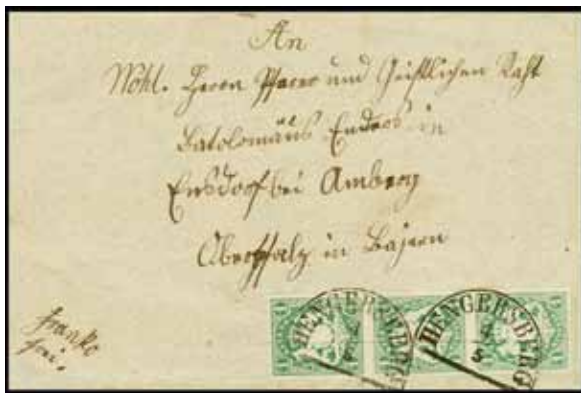 An
Wohl. Herrn Pfarer und Geistlichen Raht
Batolomäus Endres in
Ensdorf bei Amberg
Oberpfalz in Bajern
franko
frei.
HENGERSBERG
4
5
HENGERSBERG
4
5